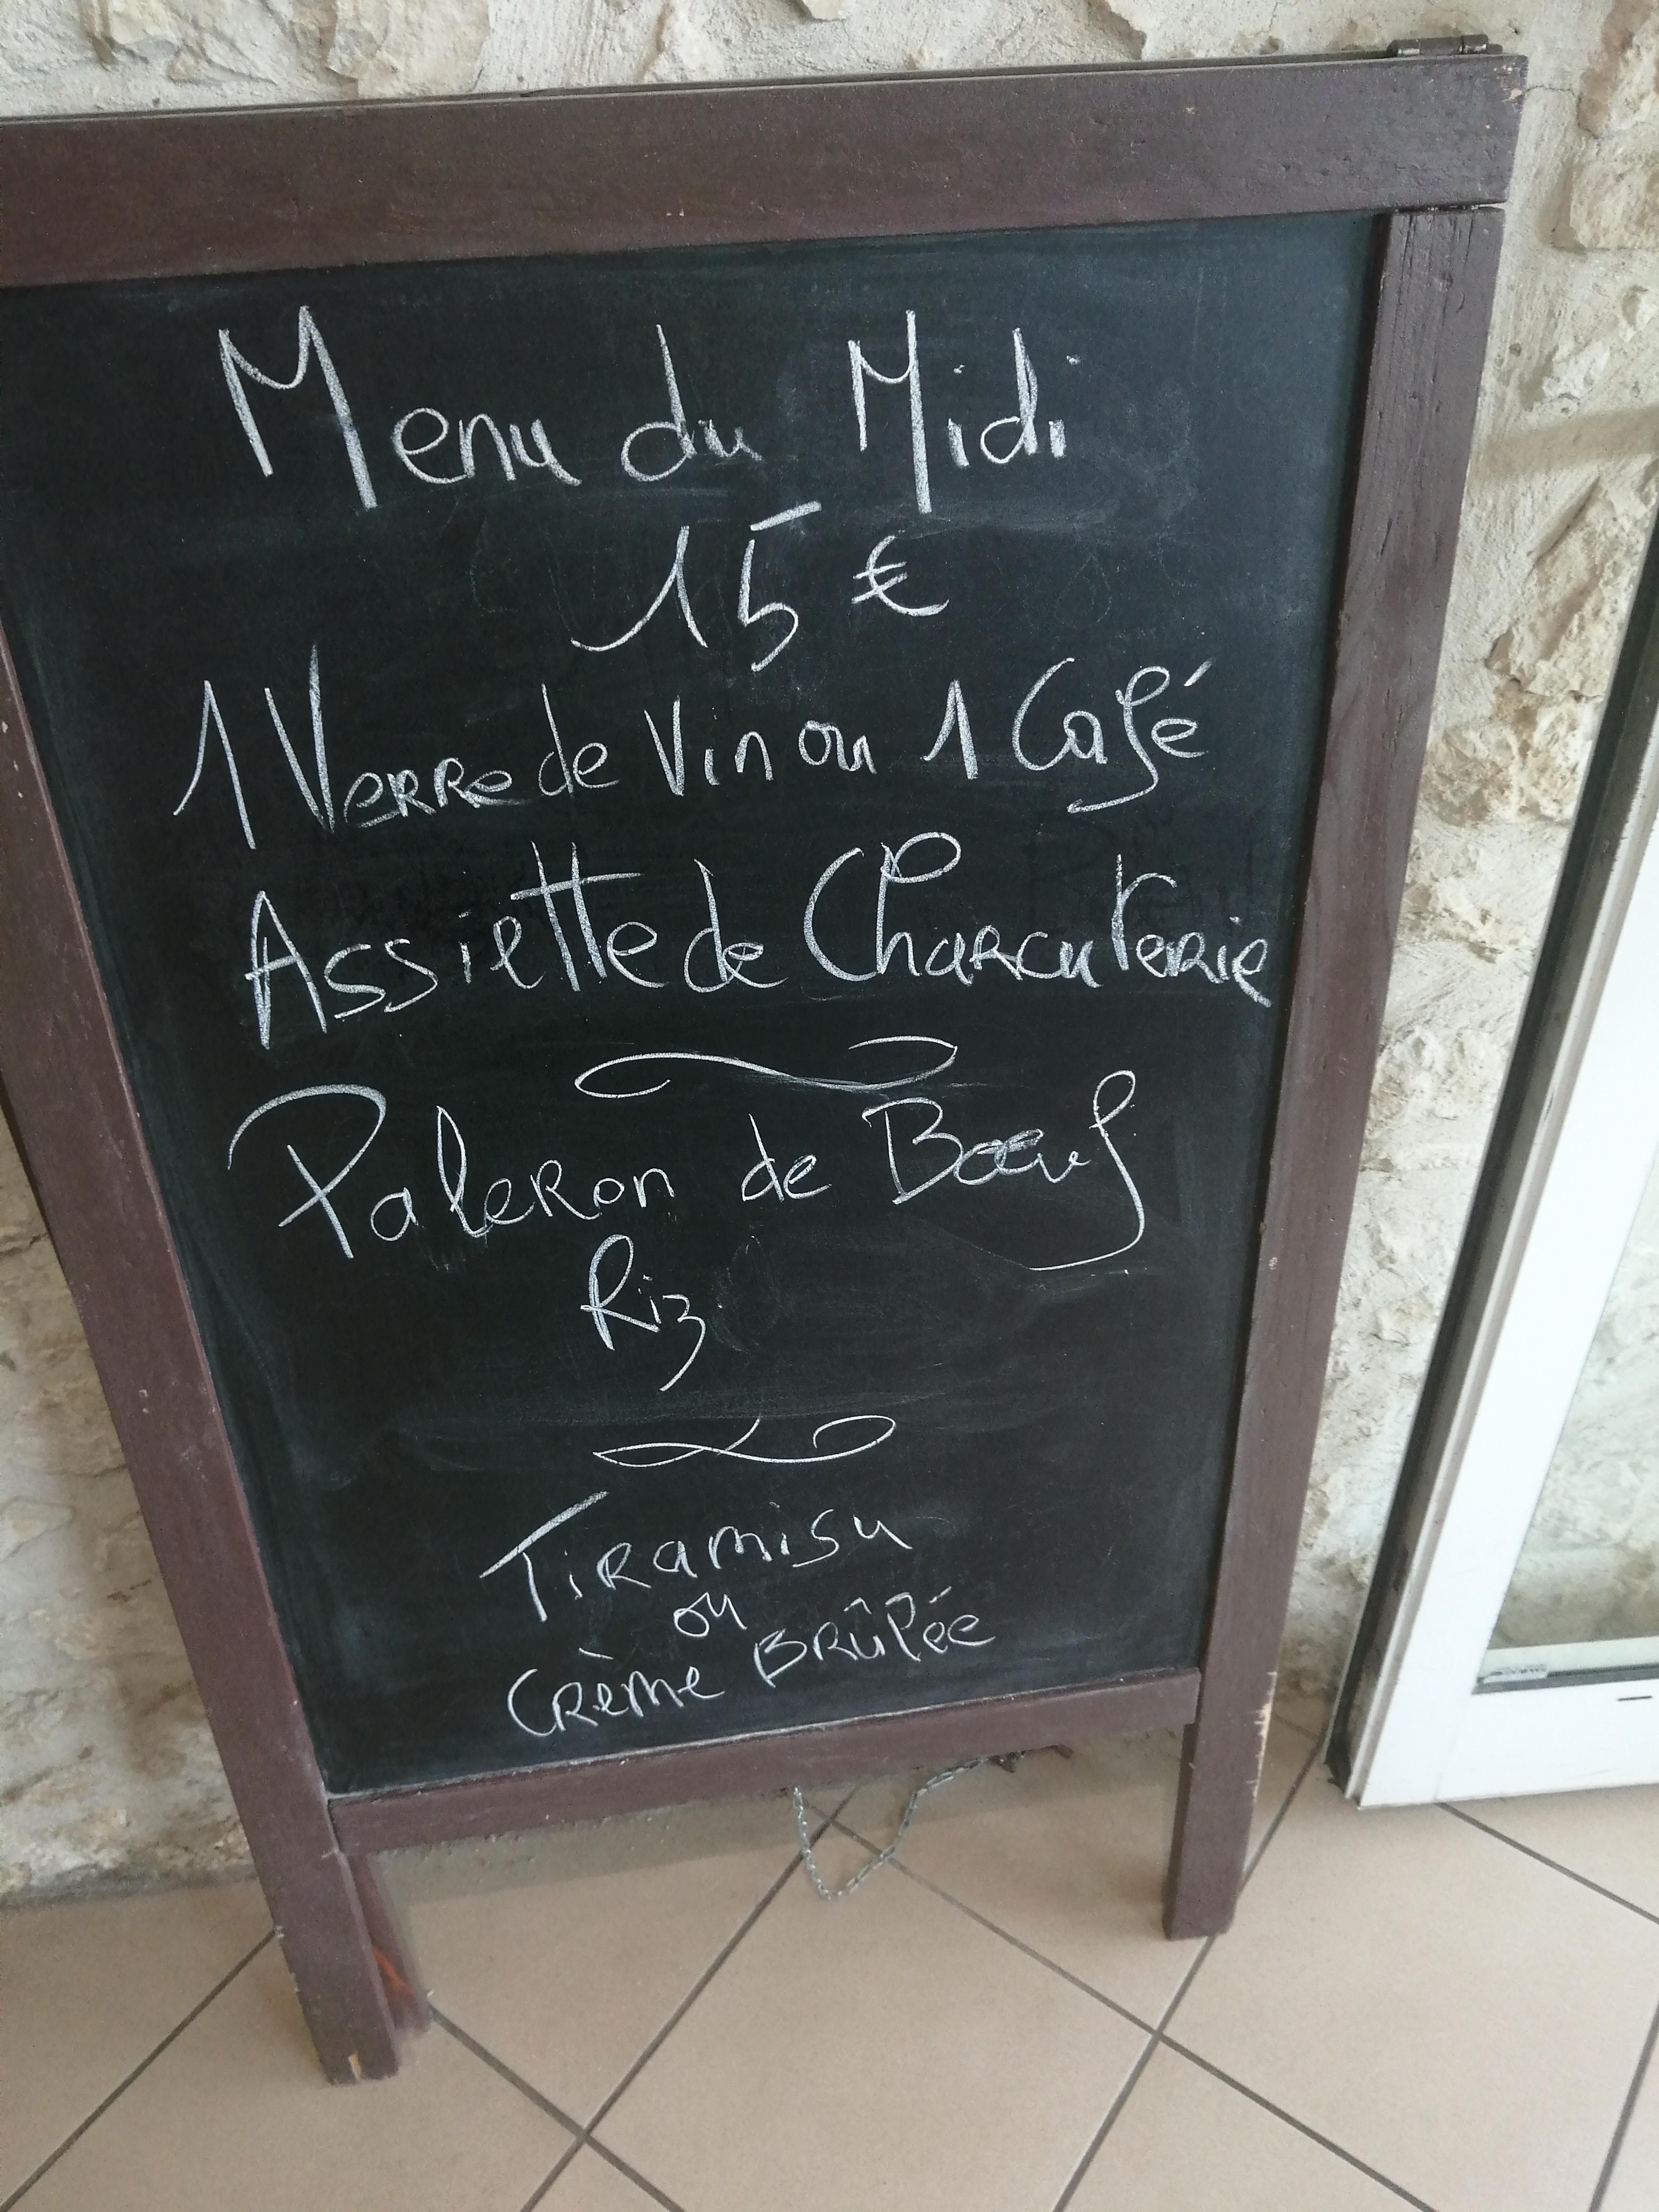 Menu du Midi
15 €
1 Verre de Vin ou 1 Café
Assiette de Charcuterie
Paleron de Boeuf
Riz
Tiramisu
ou
Crème Brûlée